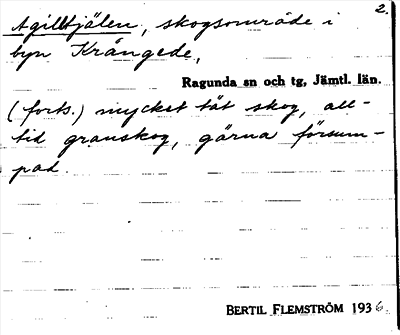 2.
Agilltjälen, skogsområde i
byn Krångede,
Ragunda sn och tg, Jämtl. län.
(forts.) mycket tät skog, all-
tid granskog, gärna försum-
pad.
BERTIL FLEMSTRÖM 1936.